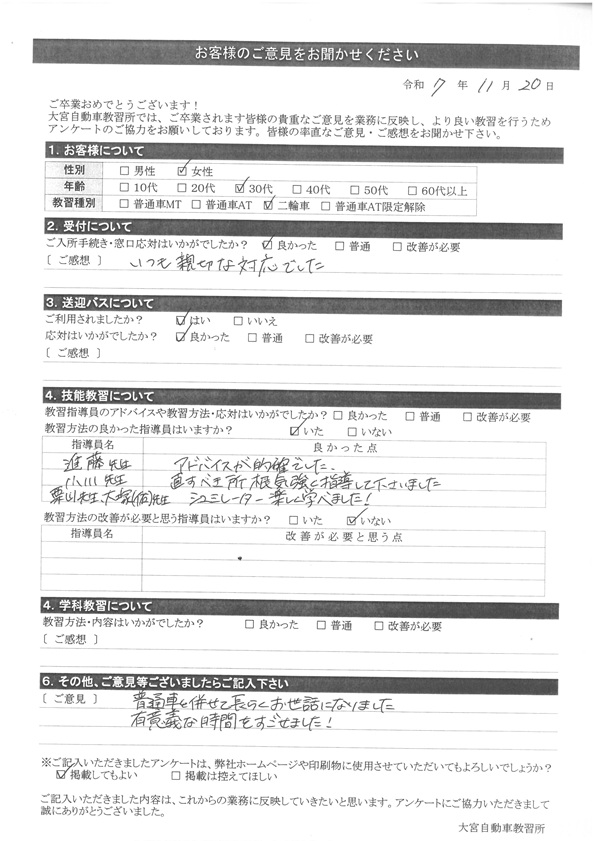 お客様のご意見をお聞かせください
令和 7 年 11 月 20 日
ご卒業おめでとうございます！
大宮自動車教習所では、ご卒業されます皆様の貴重なご意見を業務に反映し、より良い教習を行うため
アンケートのご協力をお願いしております。皆様の率直なご意見・ご感想をお聞かせ下さい。
1. お客様について
性別 □ 男性 ☑ 女性
年齢 □ 10代 □ 20代 ☑ 30代 □ 40代 □ 50代 □ 60代以上
教習種別 □ 普通車MT □ 普通車AT ☑ 二輪車 □ 普通車AT限定解除
2. 受付について
ご入所手続き・窓口応対はいかがでしたか？ ☑ 良かった □ 普通 □ 改善が必要
〔 ご感想 〕 いつも親切な対応でした
3. 送迎バスについて
ご利用されましたか？ ☑ はい □ いいえ
応対はいかがでしたか？ ☑ 良かった □ 普通 □ 改善が必要
〔 ご感想 〕
4. 技能教習について
教習指導員のアドバイスや教習方法・応対はいかがでしたか？ □ 良かった □ 普通 □ 改善が必要
教習方法の良かった指導員はいますか？ ☑ いた □ いない
指導員名 良かった点
進藤先生 アドバイスが的確でした。
小川先生 直すべき所根気強く指導して下さいました
栗山先生、大塚(信)先生 シュミレーター楽しく学べました！
教習方法の改善が必要と思う指導員はいますか？ □ いた ☑ いない
指導員名 改善が必要と思う点
4. 学科教習について
教習方法・内容はいかがでしたか？ □ 良かった □ 普通 □ 改善が必要
〔 ご感想 〕
6. その他、ご意見等ございましたらご記入下さい
〔 ご意見 〕 普通車と併せて長らくお世話になりました
有意義な時間をすごせました！
※ご記入いただきましたアンケートは、弊社ホームページや印刷物に使用させていただいてもよろしいでしょうか？
☑ 掲載してもよい □ 掲載は控えてほしい
ご記入いただきました内容は、これからの業務に反映していきたいと思います。アンケートにご協力いただきまして
誠にありがとうございました。
大宮自動車教習所